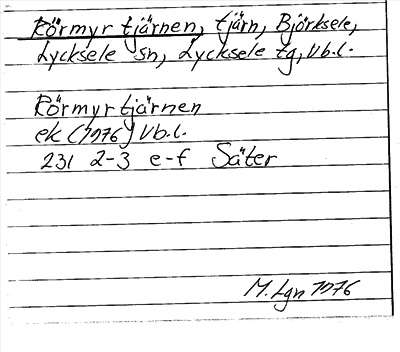 Rörmyrtjärnen, tjärn, Björksele,
Lycksele sn, Lycksele tg, Vb.l.
Rörmyrtjärnen
ek (1976) Vb.l.
231 2-3 e-f Säter
M. Lgn 1976